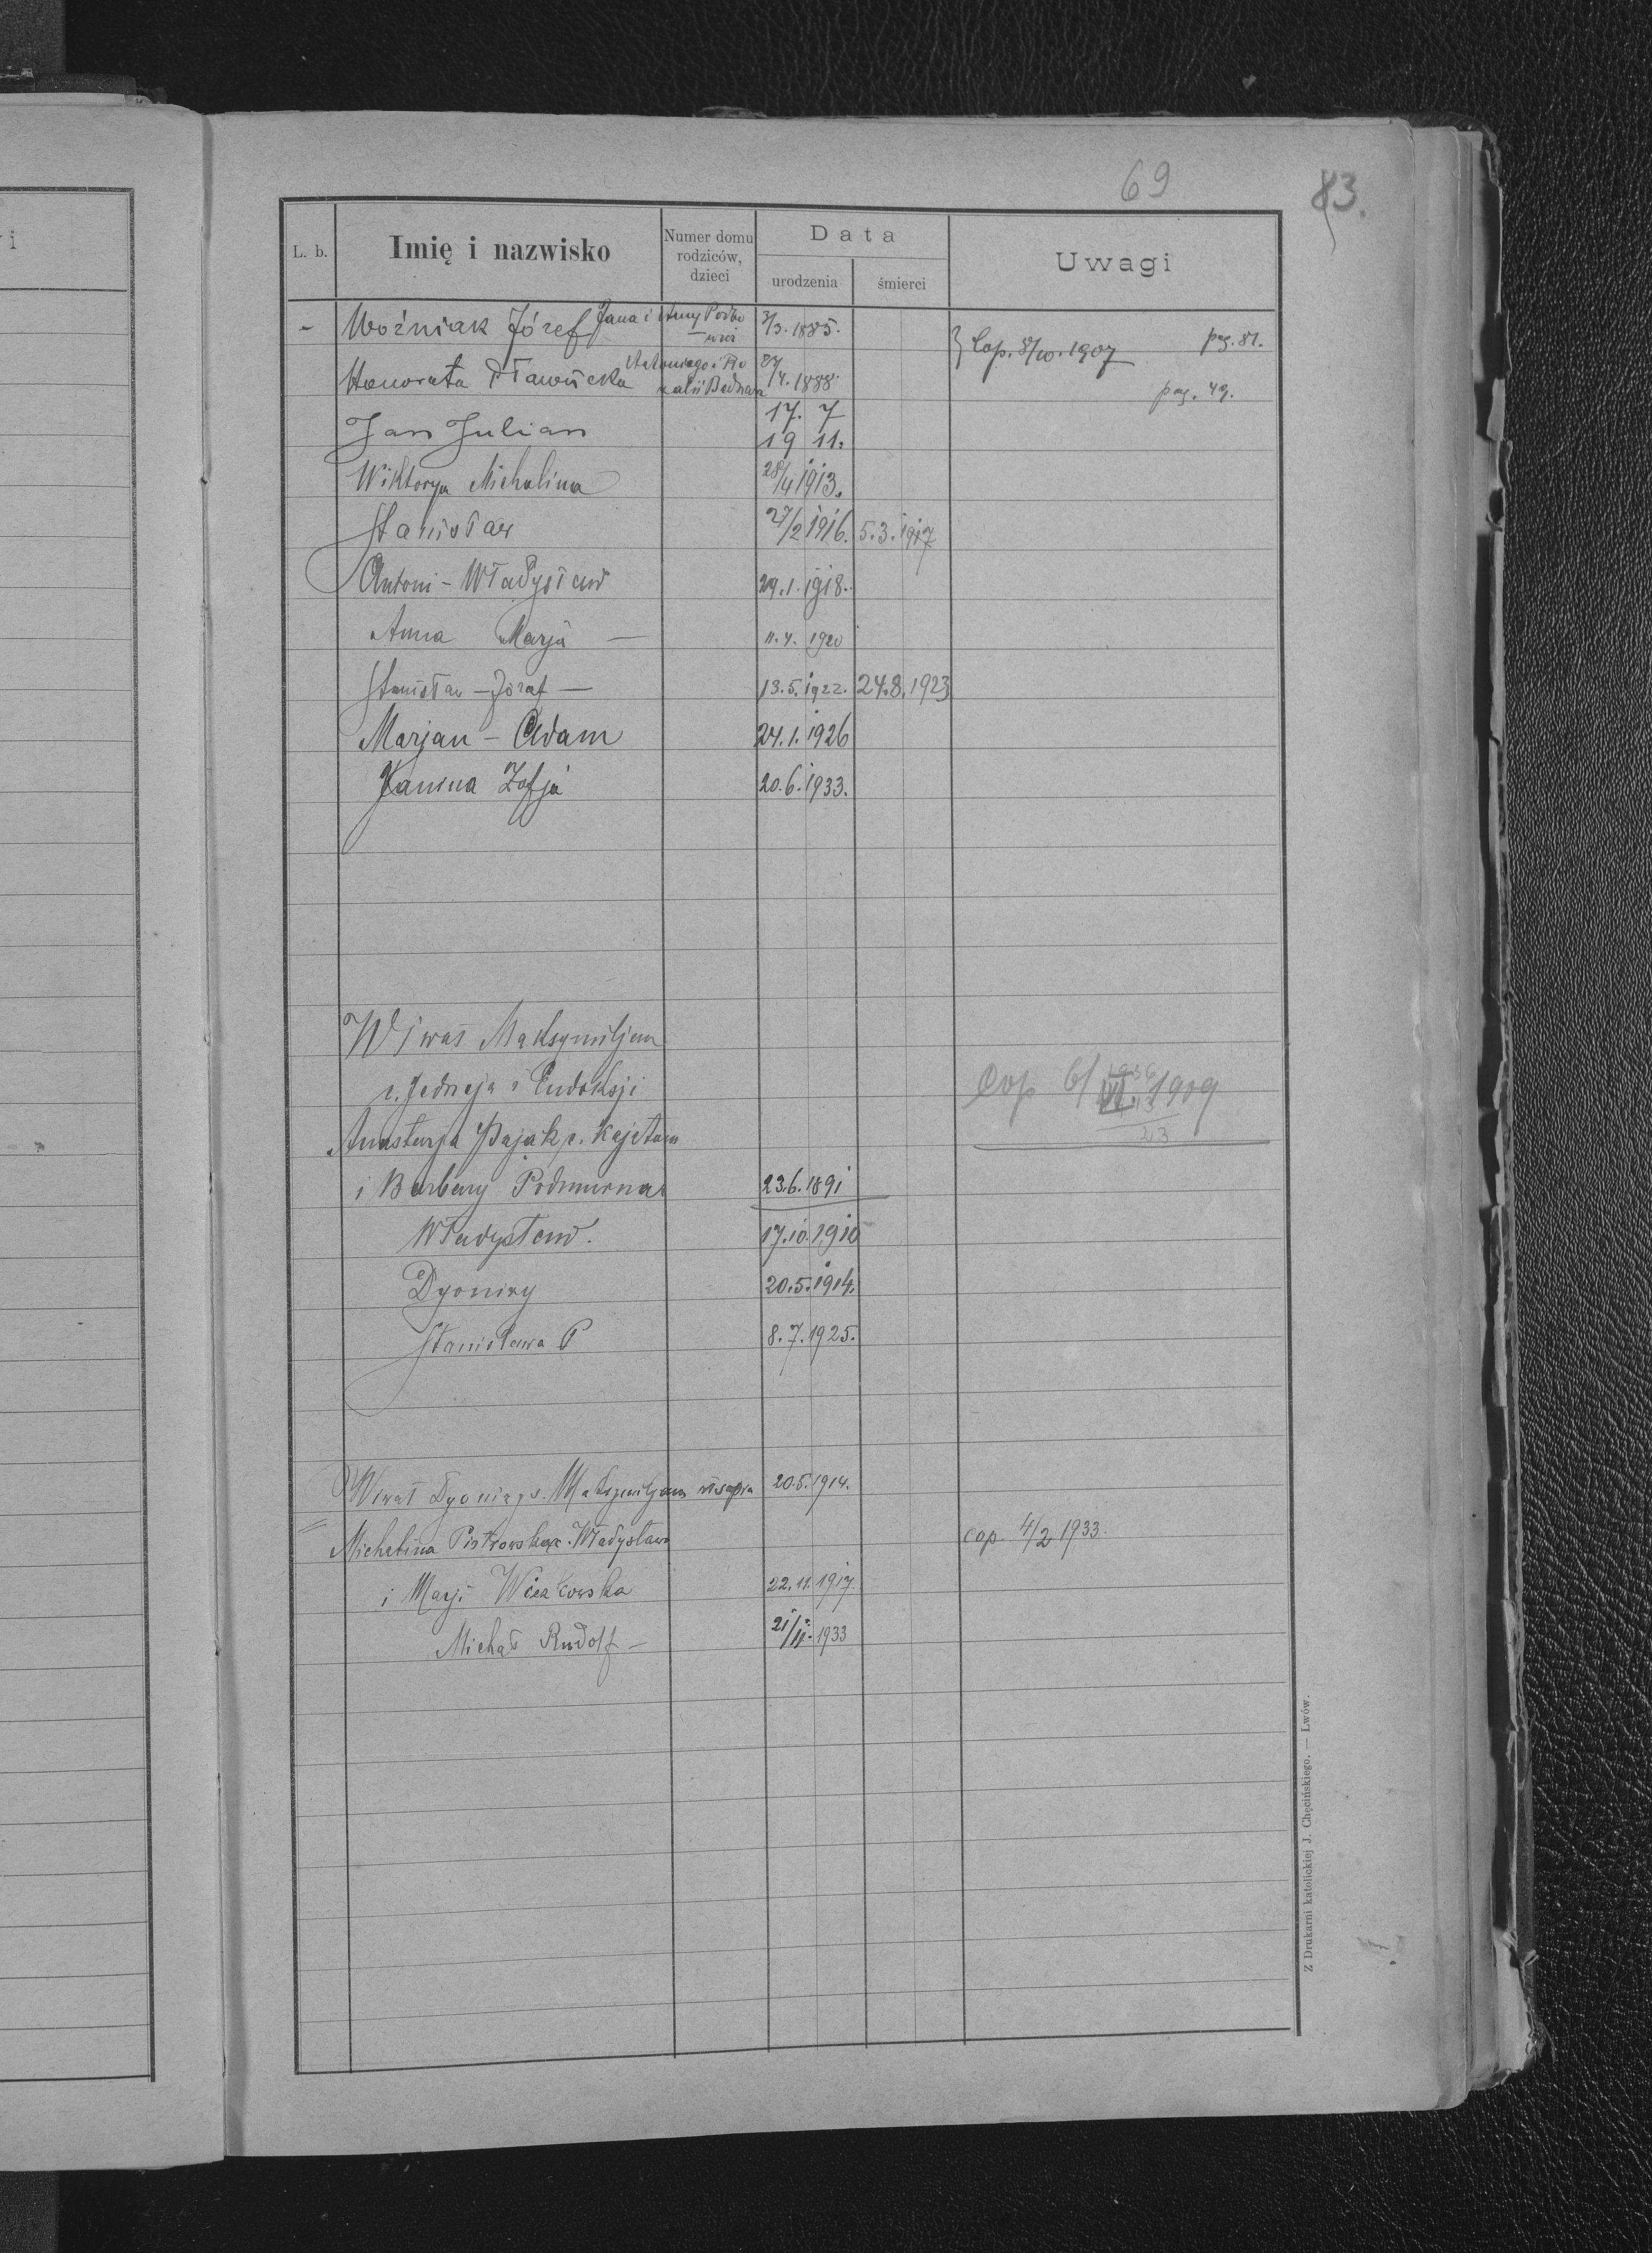 69
83.
i
L. b.
Imię i nazwisko
Numer domu
rodziców,
dzieci
Data
urodzenia
śmierci
Uwagi
Woźniak Józef Jana i Anny 3/3. 1885.
Cop. 8/10. 1907 pag. 81.
Honorata Antoniego i Ro
zalii Bednarz /4. 1888 pag. 49.
Jan Julian 17. 7
19 11.
Wiktorya Michalina 28/4 1913.
Stanisław 27/2 1916. 5.3.1917
Antoni - Władysław 29.1.1918.
Anna Marja — 11.4. 1920
Stanisław - Józef — 13.5.1922. 24.8.1923
Marjan - Adam 24.1.1926
Janina Zofja 20.6.1933.
Maksymiljan
s. Jędrzeja i Eudoksji
cop 6/VI. 1909
1936
13
23
Anastazja Pająk c. Kajetana
i Barbary 23.6.1891
Władysław. 17.10.1910
Dyonizy 20.5.1914.
Stanisława P 8.7.1925.
Dyonizy s. Maksymiljana ut supra 20.5.1914.
Michalina Piotrowska c. Władysława
cop. 4/2 1933.
i Marji 22.11.1917.
Michał Rudolf — 21/11. 1933
Z Drukarni katolickiej J. Chęcińskiego. — Lwów.